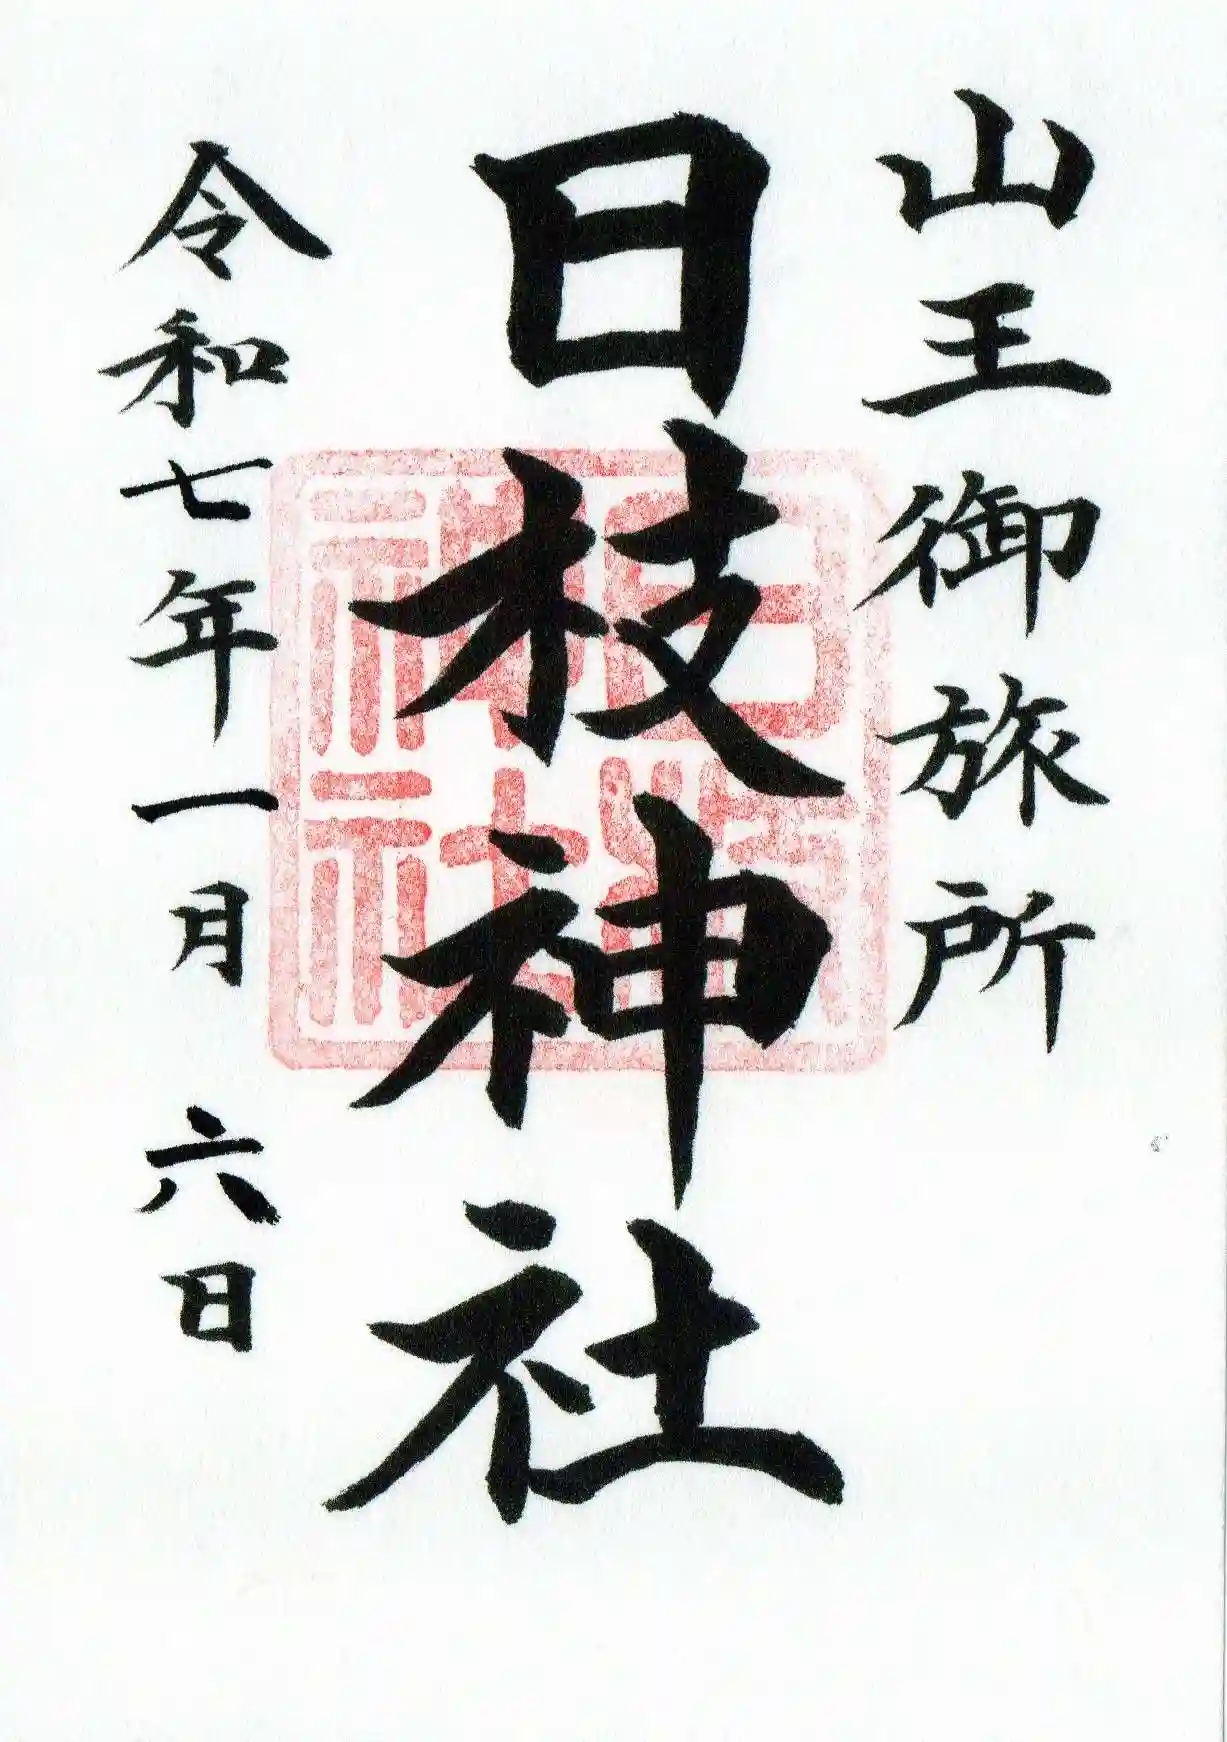 山王御旅所
日枝神社
令和七年一月六日
日枝神社